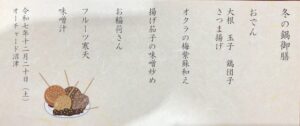 冬の鍋御膳
おでん
大根 玉子 鶏団子
さつま揚げ
オクラの梅紫蘇和え
揚げ茄子の味噌炒め
お稲荷さん
フルーツ寒天
味噌汁
令和七年十二月二十日（土）
オーチャード沼津